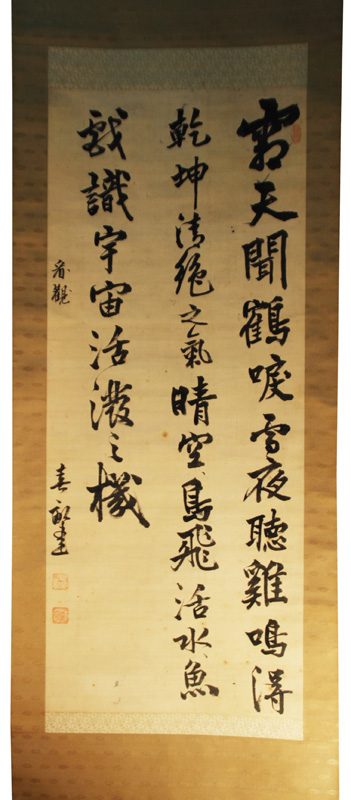 霜天聞鶴唳雪夜聽雞鳴得
乾坤清絶之氣晴空、鳥飛活水、魚
戲識宇宙活潑之機
看觀
春